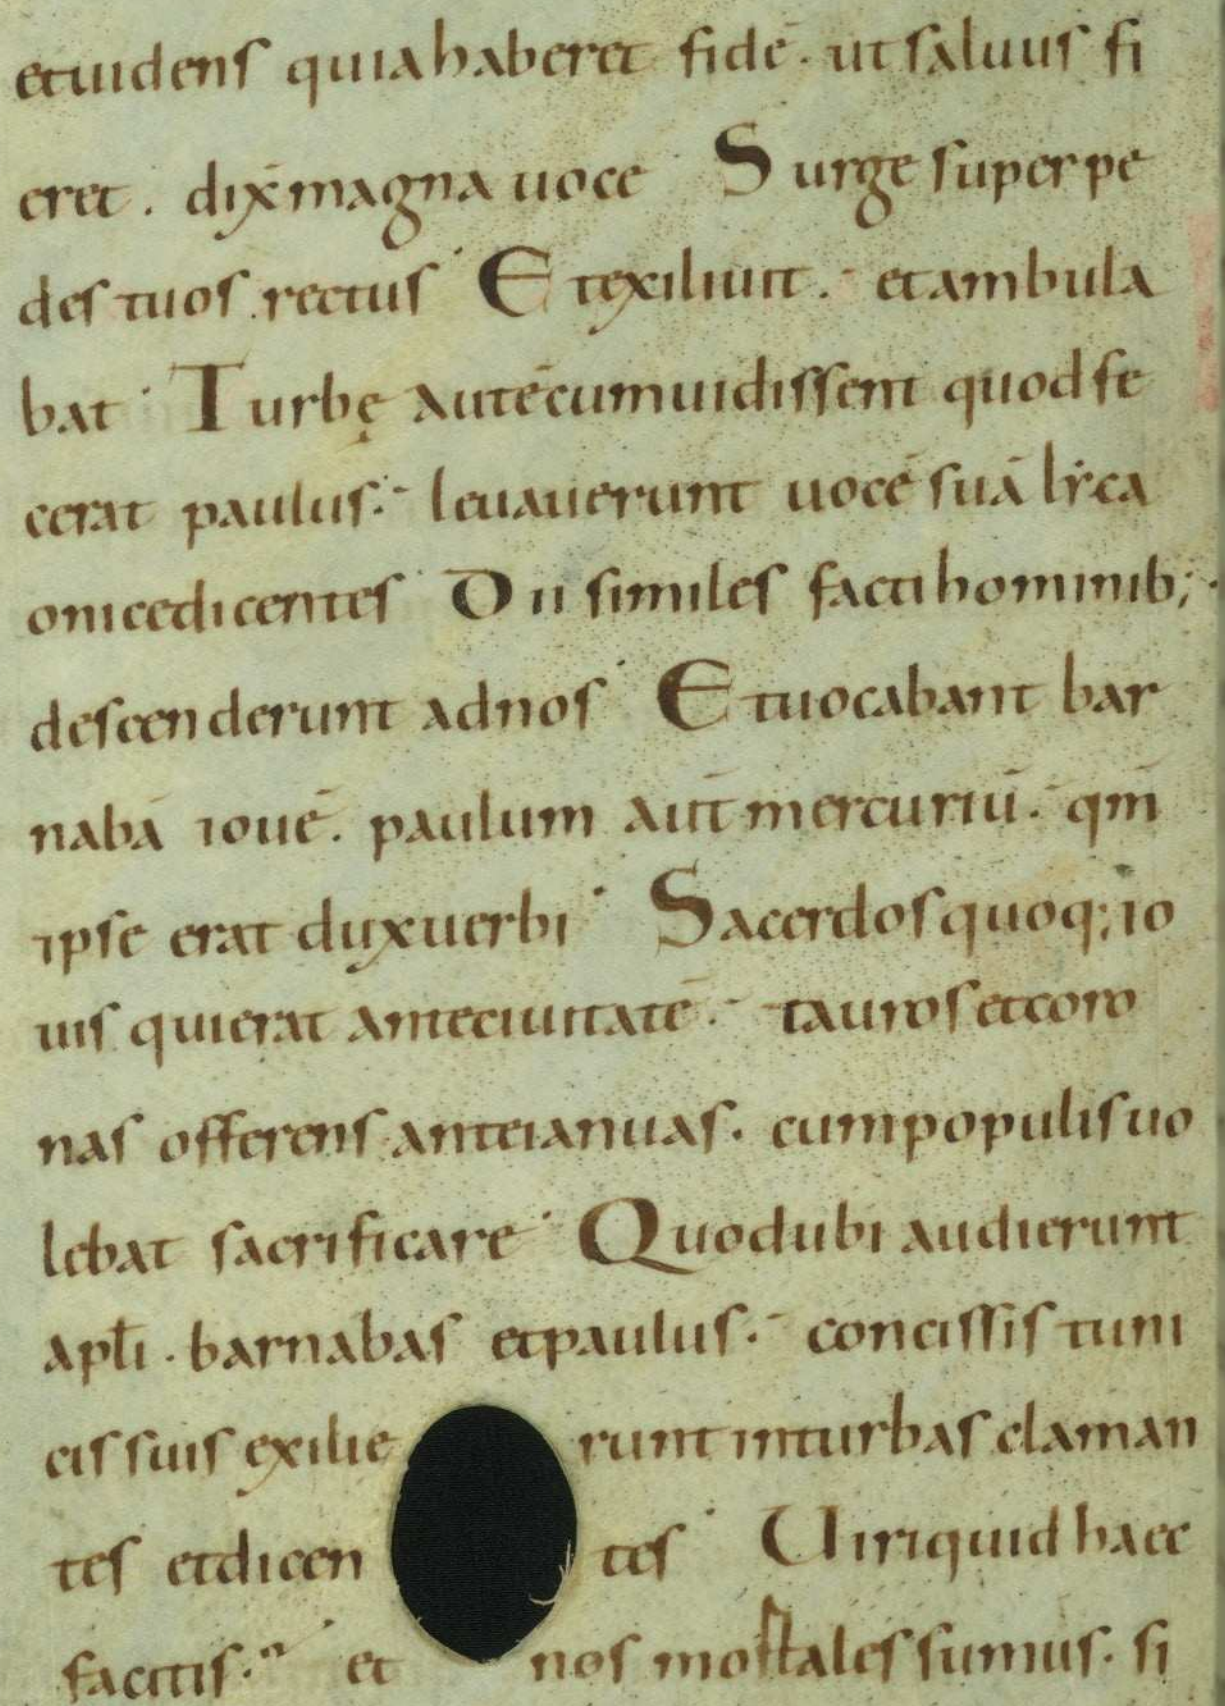 etuidens quia haberet fidē. ut saluus fi
eret. dix̄ magna uoce Surge super pe
des tuos rectus Et exiliuit. et ambula
bat Turbę autē cum uidissent quod fe
cerat paulus. leuauerunt uocē suā lẏca
onice dicentes Dii similes facti hominib;
descenderunt ad nos Et uocabant bar
nabā iouē. paulum aut̄ mercuriū. qm̄
ipse erat dux uerbi Sacerdos quoq; io
uis qui erat ante ciuitatē. tauros et coro
nas offerens ante ianuas. cum populis uo
lebat sacrificare Quod ubi audierunt
apl̄i. barnabas et paulus. concissis tuni
cis suis exilierunt in turbas claman
tes et dicentes Uiri quid haec
facitis. et nos mortales sumus. si